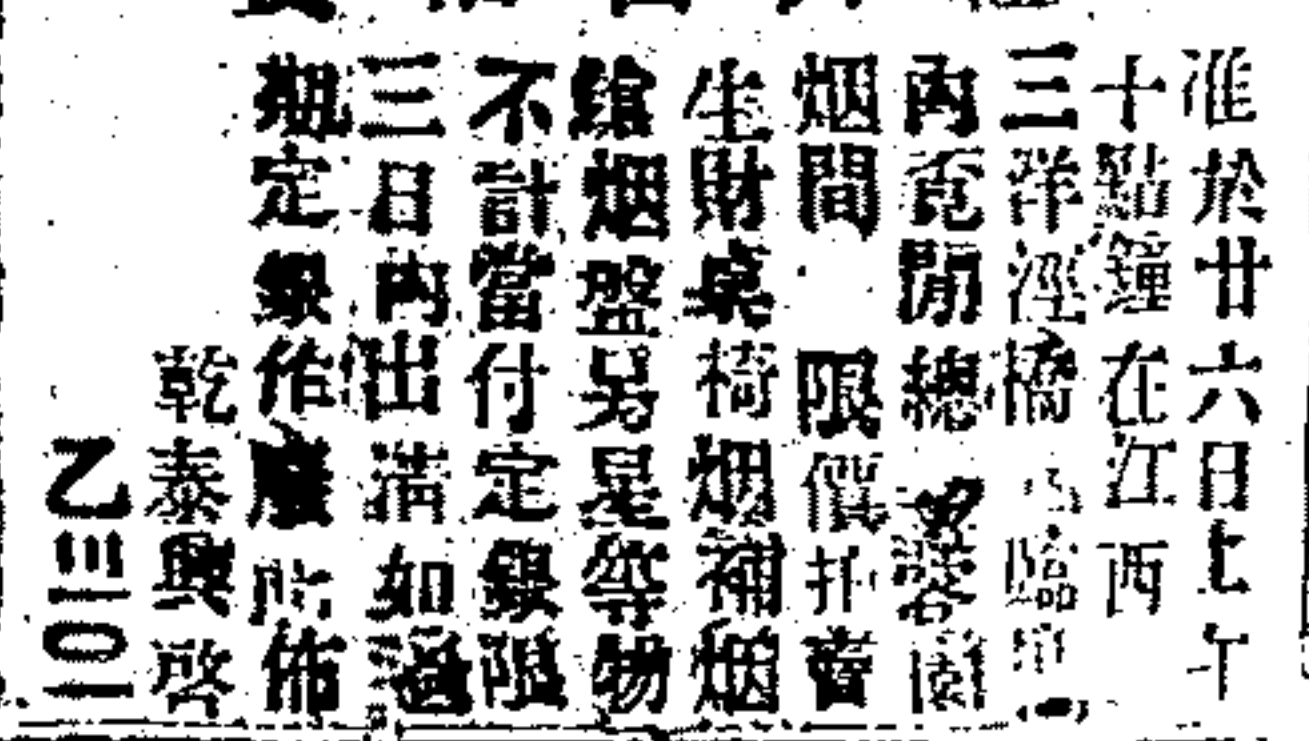 准於廿六日上午
十點鐘在江西
三洋涇橋臨
內竟開總會客園
烟間 限價拍賣
生財桌椅烟補烟
鎗烟盤另星等物
不計當付定銀限
三日內出清如過
期定銀作廢此佈
乾泰興啓
乙三二〇一